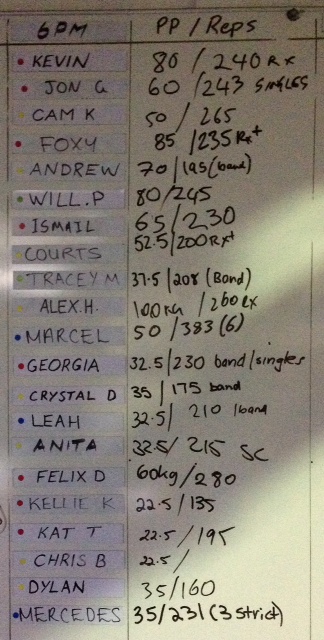 6PM PP / Reps
KEVIN 80 / 240 Rx
JON G 60 / 243 SINGLES
CAM K 50 / 265
FOXY 85 / 235 Rx+
ANDREW 70 / 195 (band)
WILL.P 80/245
ISMAIL 65 / 230
COURTS 52.5 / 200 Rx+
TRACEY M 37.5 / 208 (Band)
ALEX.H. 100kg / 260 Rx
MARCEL 50 / 383 (6)
GEORGIA 32.5 / 230 band/singles
CRYSTAL D 35 / 175 band
LEAH 32.5 / 210 1band
ANITA 32.5 / 215 SC
FELIX D 60kg / 280
KELLIE K 22.5 / 135
KAT T 22.5 / 195
CHRIS B 22.5 /
DYLAN 35/160
MERCEDES 35/231 (3 strict)